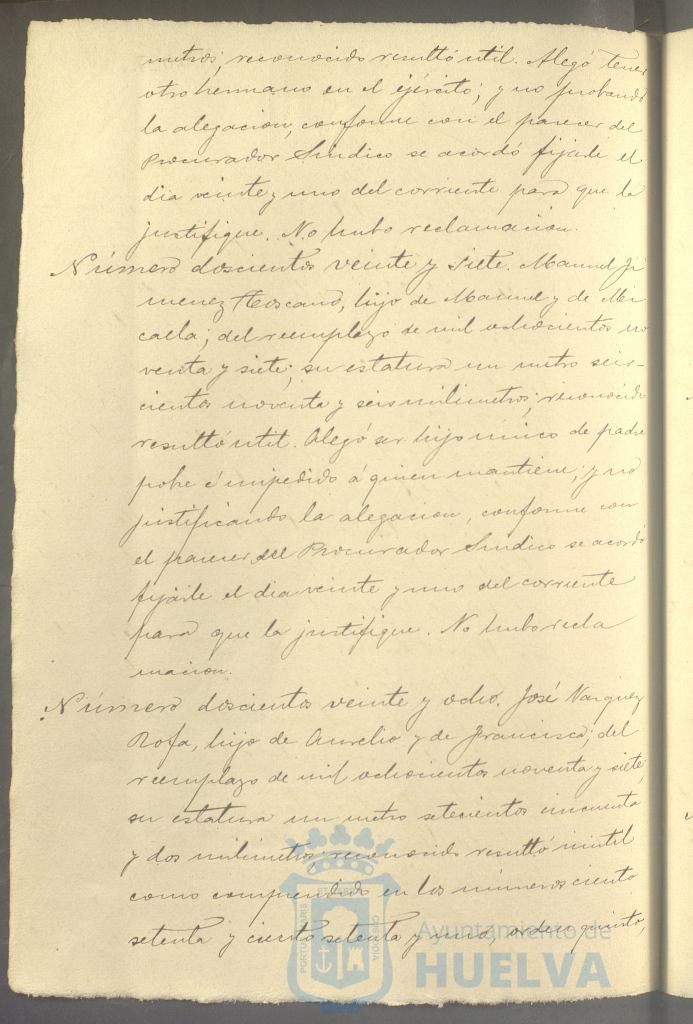 metros; reconocido resultó util. Alegó tener
otro hermano en el ejército; y no probando
la alegacion, conforme con el parecer del
Procurador Sindico se acordó fijarle el
dia veinte y uno del corriente para que la
justifique. No hubo reclamacion.
Número doscientos veinte y siete. Manuel Ji
menez Toscano, hijo de Manuel y de Mi
caela; del reemplazo de mil ochocientos no
venta y siete; su estatura un metro seis-
cientos noventa y seis milimetros; reconocido
resultó util. Alegó ser hijo único de padre
pobre é impedido á quien mantiene; y no
justificando la alegacion, conforme con
el parecer del Procurador Sindico se acordó
fijarle el dia veinte y uno del corriente
para que la justifique. No hubo recla
macion.
Número doscientos veinte y ocho. José Vazquez
Rofa, hijo de Aurelio y de Francisca; del
reemplazo de mil ochocientos noventa y siete;
su estatura un metro setecientos cincuenta
y dos milimetros; reconocido resultó inutil
como comprendido en los números ciento
setenta y ciento setenta y uno, orden quinto,
PORTUS MARIS ET TERRAE CUSTODIA
Ayuntamiento de
HUELVA